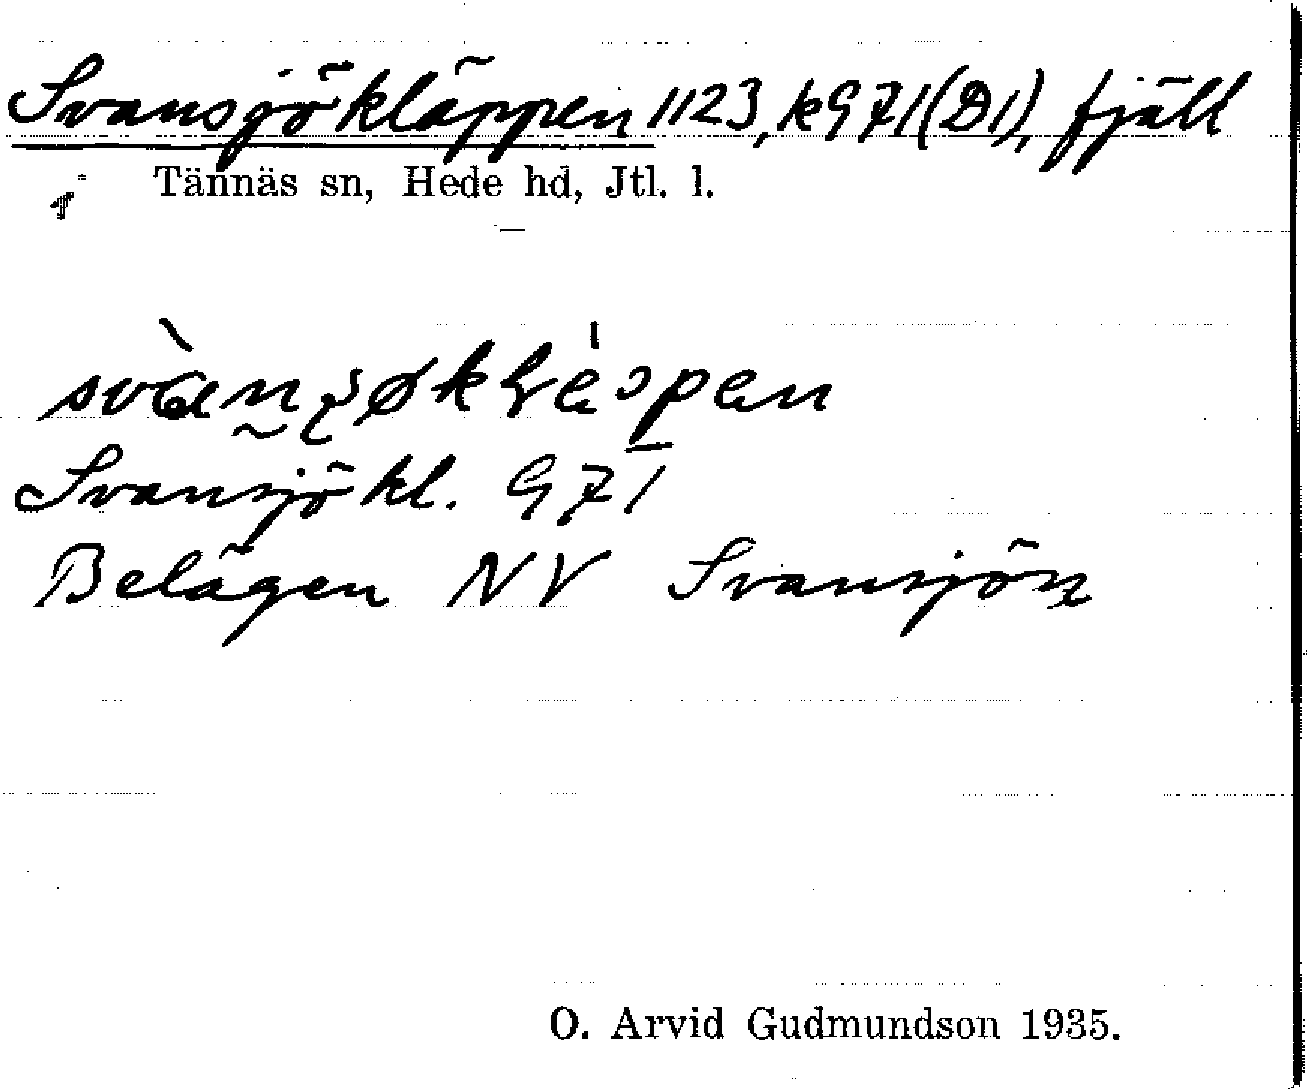 Svansjökläppen 1123, k G71 (D1), fjäll
Tännäs sn, Hede hd, Jtl. l.
Svansjökl. G71
Belägen NV Svansjön
O. Arvid Gudmundson 1935.